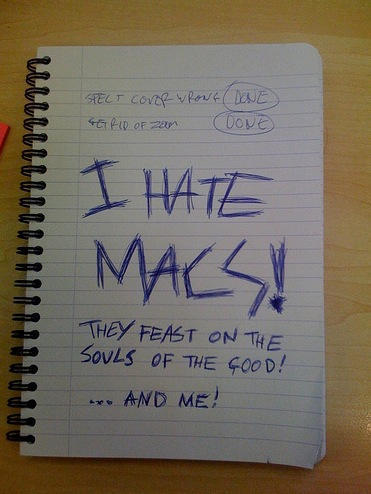 SPELT COVER WRONG DONE
GET RID OF ZOOM DONE
I HATE
MACS!
THEY FEAST ON THE
SOULS OF THE GOOD!
.... AND ME!